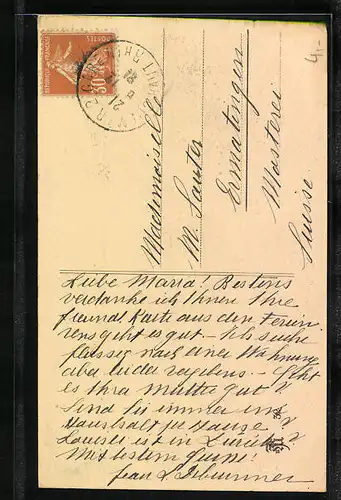 4.-
POSTES
30
Mademoiselle
M. Sauter
Ermatingen
Mosterei
Suisse
Liebe Maria! Bestens
verdanke ich Ihnen Ihre
freundl Karte aus den Ferien
uns geht es gut – Ich suche
fleissig nach einer Wohnung
aber leider vergebens. – Geht
es Ihrer Mutter gut?
Sind Sie immer im
Haushalt zu Hause?
Louisli ist in Zürich
Mit bestem Gruss!
frau